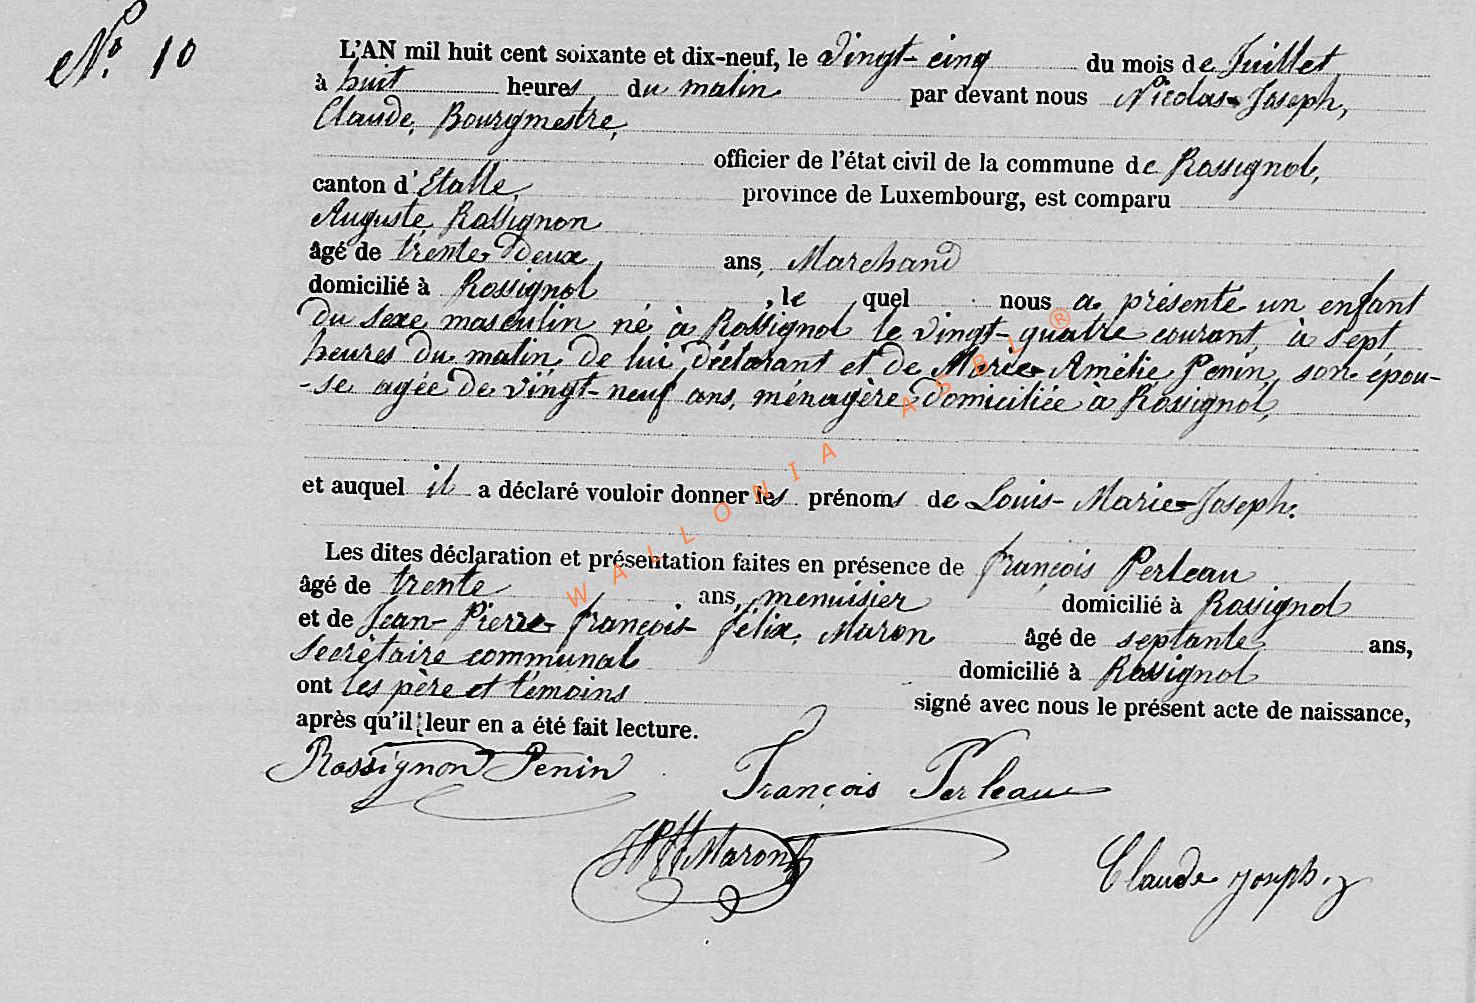 N° 10
L'AN mil huit cent soixante et dix-neuf, le Vingt-cinq du mois de Juillet
à huit heures du matin par devant nous Nicolas-Joseph,
Claude, Bourgmestre,
officier de l'état civil de la commune de Rossignol,
canton d'Etalle, province de Luxembourg, est comparu
Auguste, Rossignon
âgé de trente-Deux ans, Marchand
domicilié à Rossignol, le quel nous a présenté un enfant
Du Sexe masculin né à Rossignol le vingt-quatre courant, à sept
heures Du matin, De lui Déclarant et De Marie-Amélie Penin, son épou-
-se agée De vingt-neuf ans, ménagère Domiciliée à Rossignol,
et auquel il a déclaré vouloir donner les prénoms de Louis-Marie-Joseph.
Les dites déclaration et présentation faites en présence de françois Perleau
âgé de trente ans, menuisier domicilié à Rossignol
et de Jean-Pierre-françois-félix, Maron âgé de septante ans,
Secrétaire communal domicilié à Rossignol
ont les père et témoins signé avec nous le présent acte de naissance,
après qu'il leur en a été fait lecture.
Rossignon Penin François Perleau
JPFF Maron
Claude Joseph
WALLONIA ASBL ®